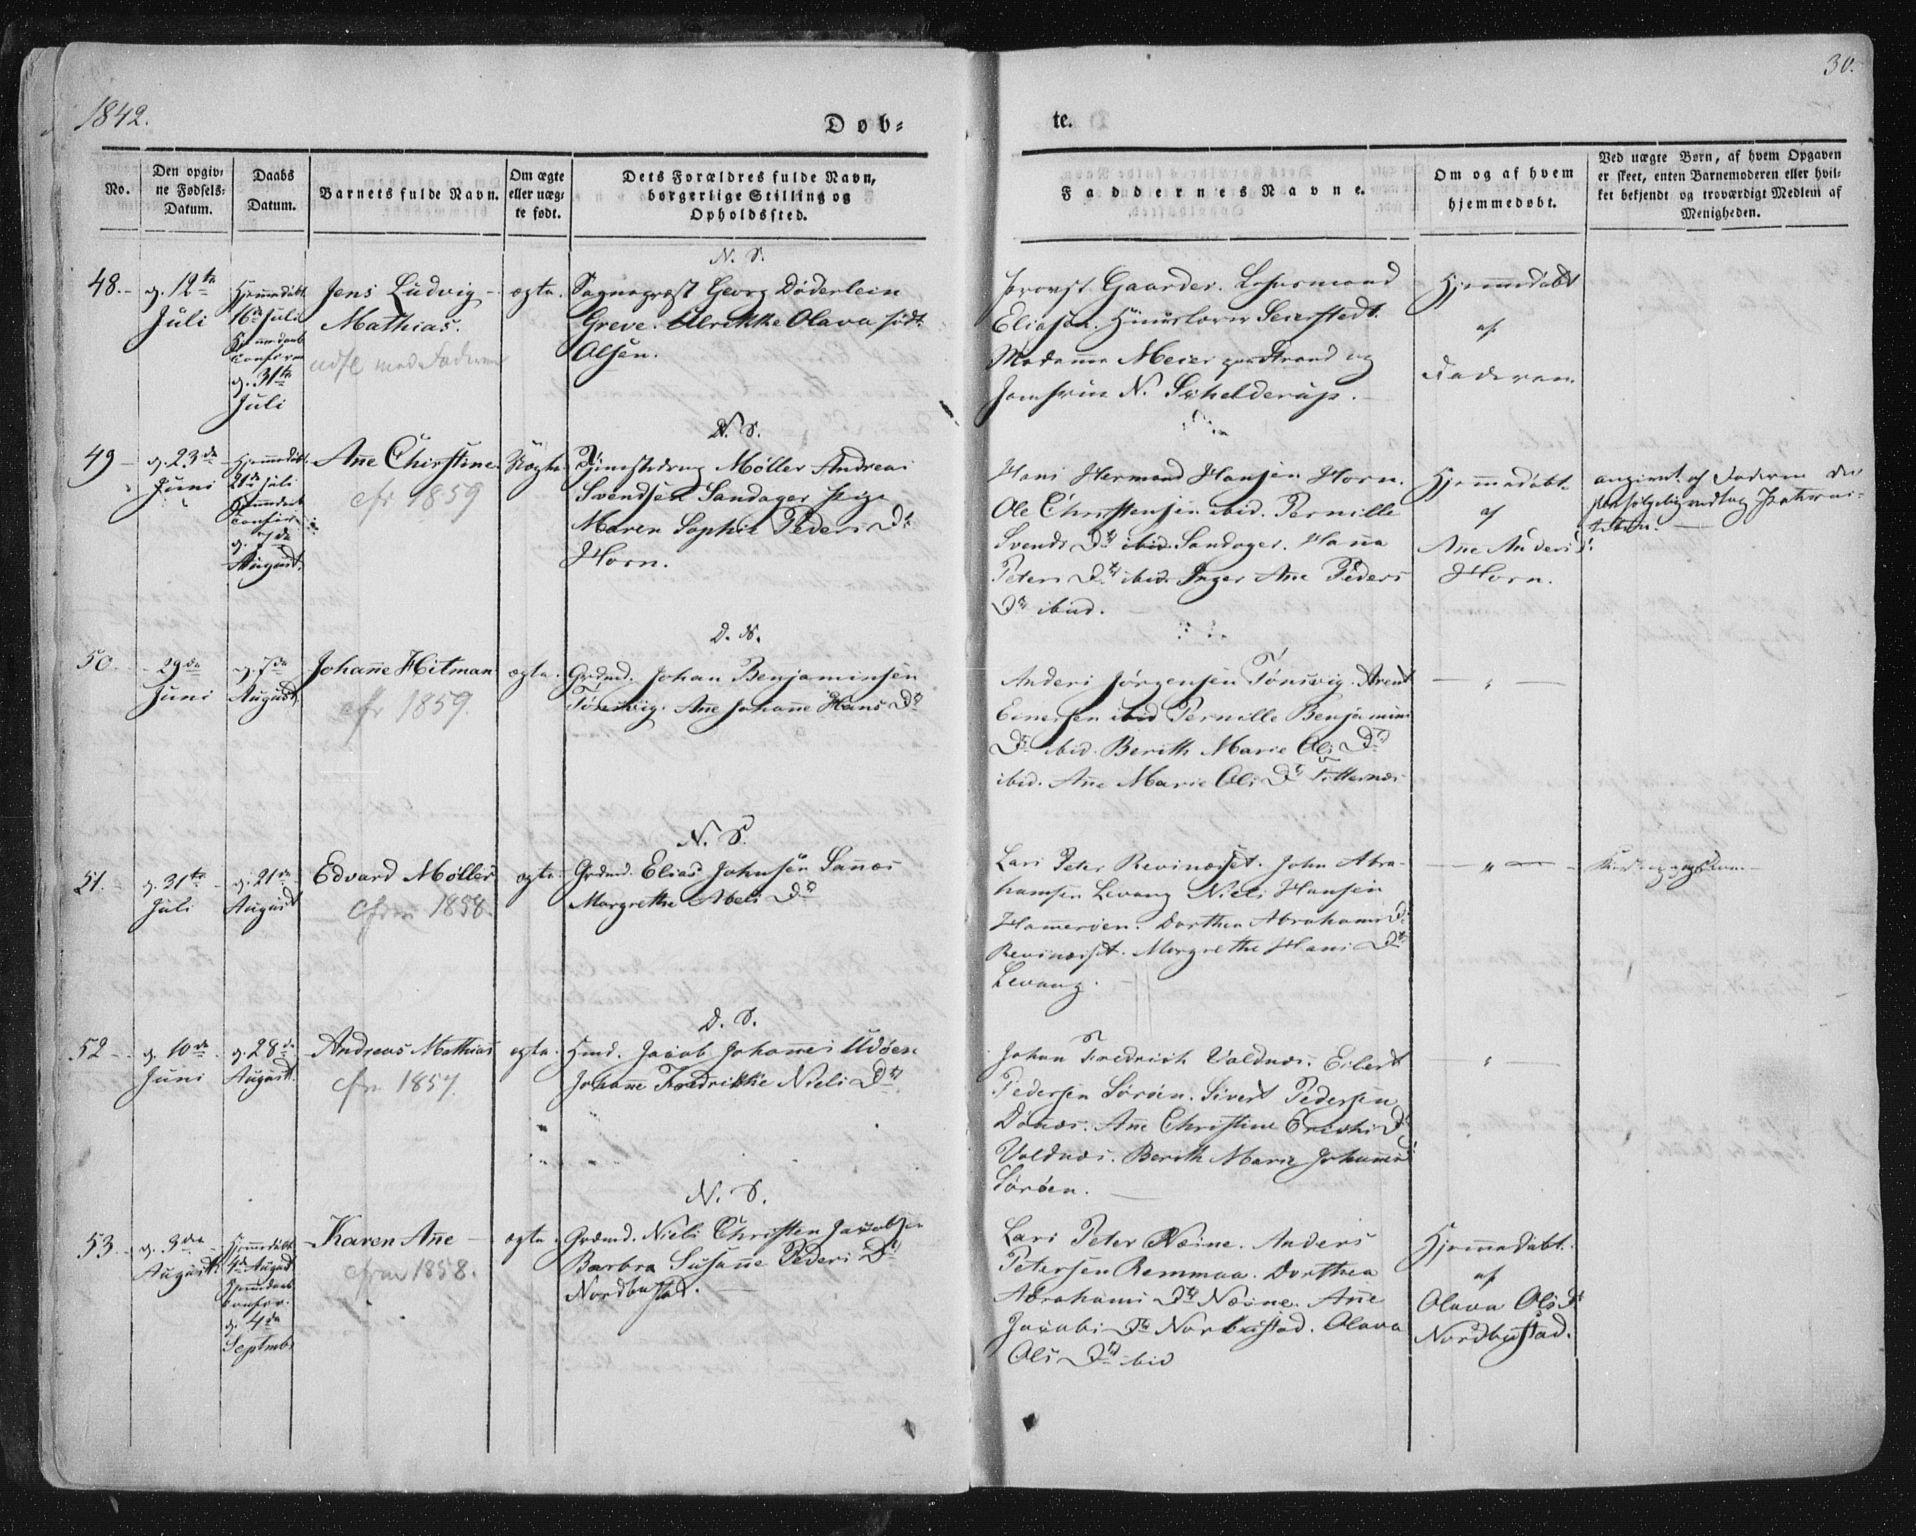 1842.
Døb-
te.
30.
No.
Den opgiv-
ne Fødsels-
Datum.
Daabs
Datum.
Barnets fulde Navn.
Om ægte
eller uæg-
te født.
Dets Forældres fulde Navn,
borgerlige Stilling og
Opholdssted.
Faddernes Navne.
Om og af hvem
hjemmedøbt.
Ved uægte Børn, af hvem Opgaven
er skeet, enten Barnemoderen eller hvil-
ket bekjendt og troværdigt Medlem af
Menigheden.
N. S.
48.
d. 12te
Juli
Hjemmedøbt
16de Juli
Hjemmedaab
confirm
d. 31te
Juli
Jens Ludvig
Mathias.
udfl med Faderen
ægte.
Sognepræst Georg Døderlein
Greve. Ulrikke Olava født
Olsen.
Provst Gaarder. Lehnsmand
Eliasen. Seierstedt.
Madame Meier Strand og
Jomfrue N. Schelderup.
Hjemmedøbt
af
Faderen.
N. S.
49
d. 23de
Juni
Hjemmedøbt
21de Juli
Hjemmedaab
confir-
d. 7de
August.
Ane Christine
cfr 1859
Uægte
Tjenestedreng Møller Andreas
Svendsen Sandager Pige
Maren Sophie Peders Dtr
Horn.
Hans Hermand Hansen Horn.
Ole Christensen ibid. Pernille
Svends Dtr ibid. Sandager. Hanna
Peters Dtr ibid. Inger Ane Peders
Dtr ibid.
Hjemmedøbt
af
Ane Anders D.
Horn.
angivet af Faderen
D. N.
50.
29de
Juni
d. 7de
August
Johanne Hitman
cfr 1859.
ægte.
Grdmd. Johan Benjaminsen
Tønsvig. Ane Johanne Hans Dtr
Anders Jørgensen Tønsvig. Arent
Einersen ibid Pernille Benjamins
Dtr ibid. Berith Marie Ols Dtr
ibid. Ane Marie Ols Dtr
N. S.
51.
d. 31te
Juli
d. 21de
August
Edvard Møller
1858.
ægte
Grdmd. Elias Johnsen Sannæs
Margrethe Abels Dtr
Lars Peter Revinæsset. John Abra-
hamsen Levang Niels Hansen
Hammerøen. Dorthea Abrahams D.
Revinæset. Margrethe Hans Dtr
Levang.
D. S.
52
d. 10de
Juni
d. 28de
August.
Andreas Mathias
cfr 1857.
ægte
Hmd. Jacob Johannes Udøen
Johanne Fredrikke Niels Dtr
Johan Fredrich Valdnæs. Eilert
Pedersen Sørøen. Sivert Pedersen
Dønæs. Ane Christine Erichs D.
Valdnæs. Berith Marie Johannes
Sørøen.
N. S.
53
d. 3de
August.
Hjemmedøbt
4de August
Hjemmedaab
confir.
d. 4de
Septmb.
Karen Ane
1858.
ægte.
Grdmd. Niels Christen Jacobsen
Barbra Susanne Peders Dtr
Nordbustad.
Lars Peter Næsne. Anders
Petersen Remmaa. Dorthea
Abrahams Dtr Næsne. Ane
Jacobs Dtr Norbustad. Olava
Ols Dtr ibid
Hjemmedøbt.
af
Olava Ols D.
Nordbustad.